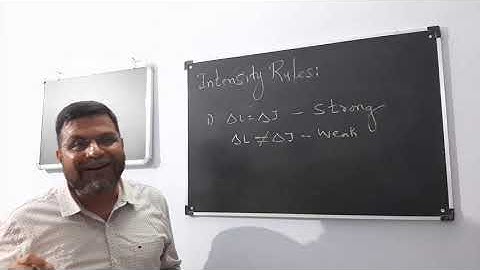 Intensity Rules:
1) ΔL = ΔJ - Strong
ΔL ≠ ΔJ - Weak